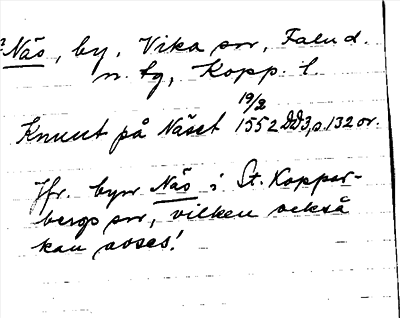 Näs, by, Vika sn, Falu d.
n. tg, Kopp. l.
19/2
Knuut på Näset 1552 DD3, s. 132 or.
Jfr. byn Näs i St. Koppar-
bergs sn, vilken också
kan avses!